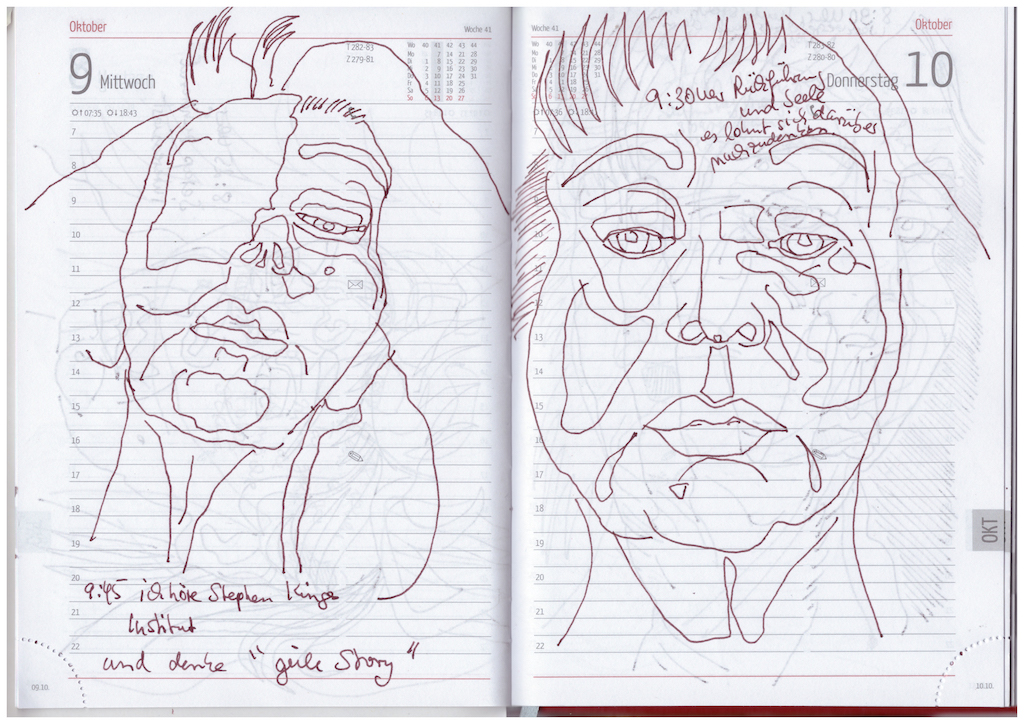 Oktober
Woche 41
9 Mittwoch
T 282-83
Z 279-81
Wo 40 41 42 43 44
Mo 7 14 21 28
Di 1 8 15 22 29
Mi 2 9 16 23 30
Do 3 10 17 24 31
Fr 4 11 18 25
Sa 5 12 19 26
So 6 13 20 27
07:35 18:43
7
8
9
10
11
12
13
14
15
16
17
18
19
20
21
22
9:45 ich höre Stephen Kings
Institut
und denke "geile Story"
09.10.
Woche 41
Oktober
Wo 40 41 42 43 44
T 283-82
Z 280-80
Donnerstag 10
9:30 Uhr Rückführung
und Seele
es lohnt sich darüber
nachzudenken.
7
8
9
10
11
12
13
14
15
16
17
18
19
20
21
22
OKT
10.10.